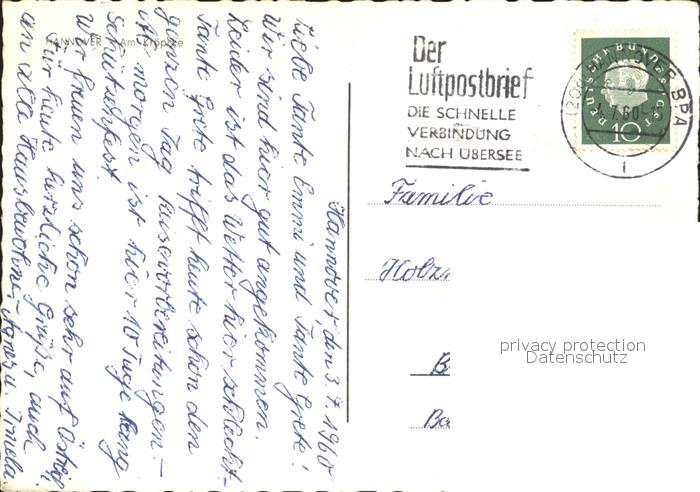 HANNOVER Am Kröpcke
Hannover, den 3.7.1960
Liebe Tante Emmi und Tante Grete!
Wir sind hier gut angekommen.
Leider ist das Wetter hier schlecht.
Tante Grete trifft heute schon den
ganzen Tag Reisevorbereitungen.-
Ab morgen ist hier 10 Tage lang
Schützenfest.
Wir freuen uns schon sehr auf
Für heute herzliche Grüße, auch
an alle Hausbewohner
Der
Luftpostbrief
DIE SCHNELLE
VERBINDUNG
NACH ÜBERSEE
DEUTSCHE BUNDESPOST
10
HANNOVER BPA
Familie
Holz
B
Ba
privacy protection
Datenschutz